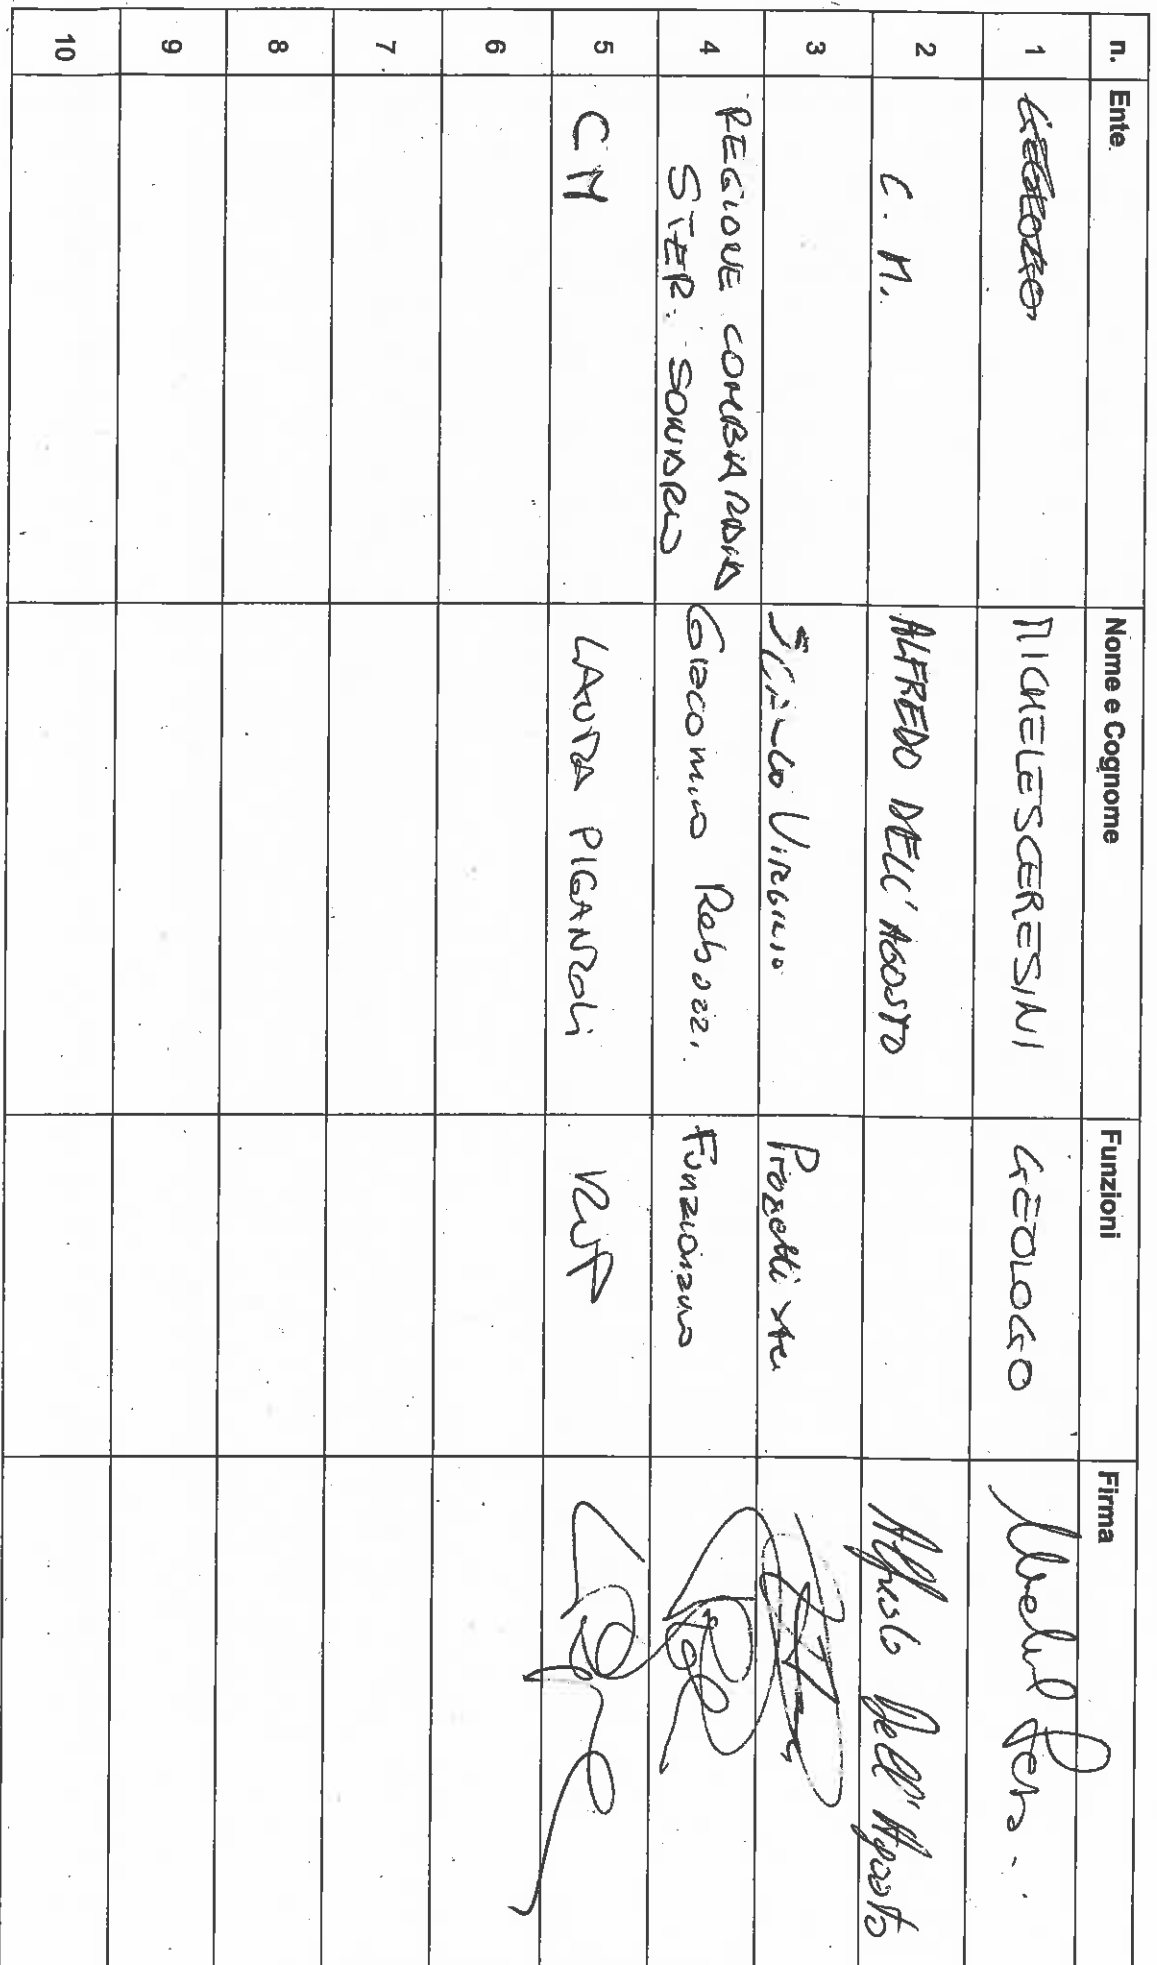 n. Ente Nome e Cognome Funzioni Firma
1 MICHELE SCERESINI GEOLOGO
2 C. M. ALFREDO DELL'AGOSTO Alfredo Dell'Agosto
3 Virgilio Progettista
4 REGIONE LOMBARDIA
STER SONDRIO Giacomino Rebuzzi Funzionario
5 CM LAURA PIGANZOLI RUP
6
7
8
9
10